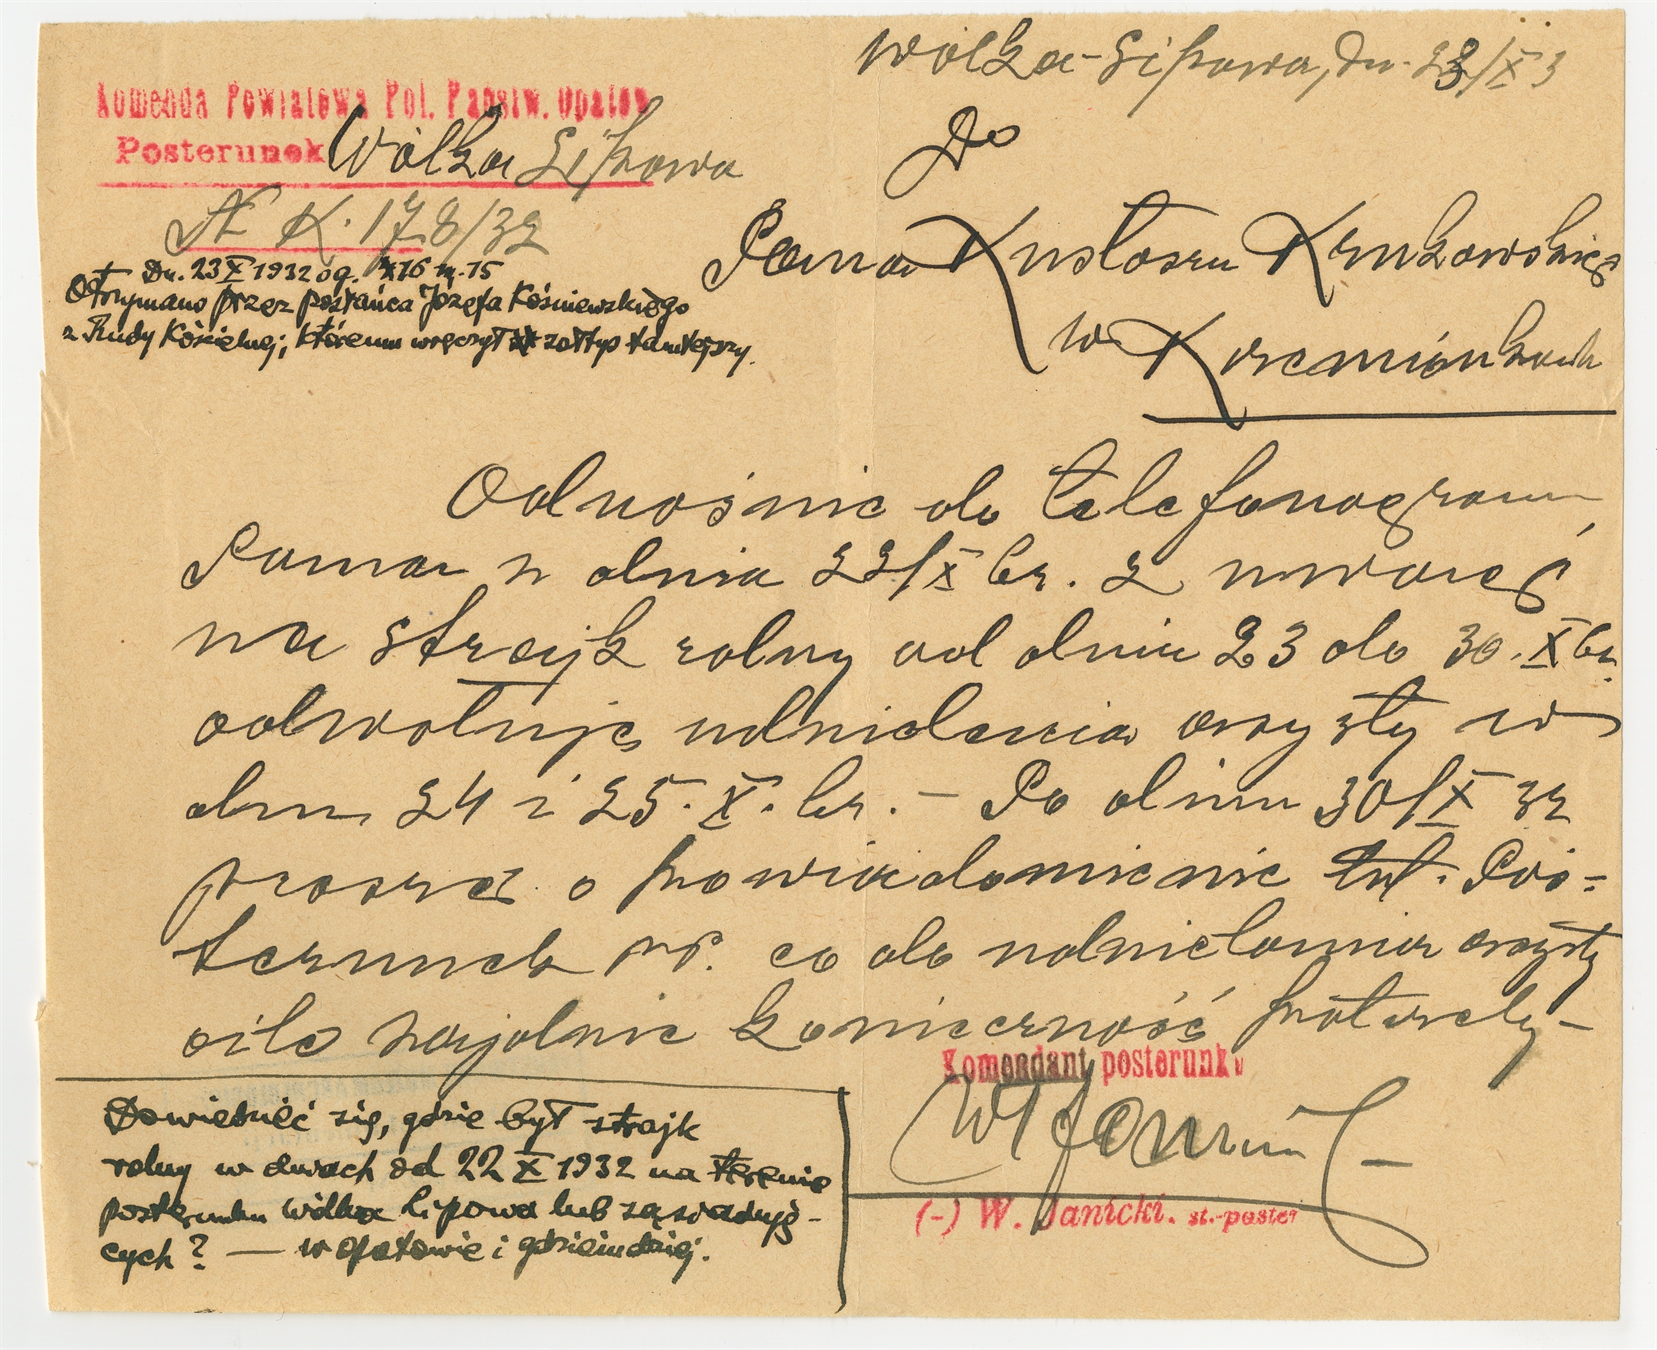 Wólka-Lipowa, dn. 23/X 3
Komenda Powiatowa Pol. Państw. Opatów
Posterunek Wólka Lipowa
N K. 178/32
Dn. 23 X 1932 o g. 16 m. 15
Otrzymano przez posłańca Józefa Kośniewskiego
z Rudy Kościelnej, któremu wręczył sołtys tamtejszy.
Do
Pana Kustosza Krukowskiego
w Krzemionkach
Odnośnie do telefonogramu
Pana z dnia 22/X br. z uwagi
na strajk rolny od dnia 23 do 30. X br.
odwołuję udzielenia asysty w
dniu 24 i 25. X. br. – Po dniu 30/X 32
proszę o powiadomienie tut. Pos-
terunek P.P. co do udzielania asysty
o ile zajdzie konieczność potrzeby –
Komendant posterunku
W Janicki
(-) W. Janicki. st.-poster
Dowiedzieć się, gdzie był strajk
rolny w dniach od 22 X 1932 na terenie
posterunku Wólka Lipowa lub sąsiadują-
cych? — w Opatowie i gdzieindziej.